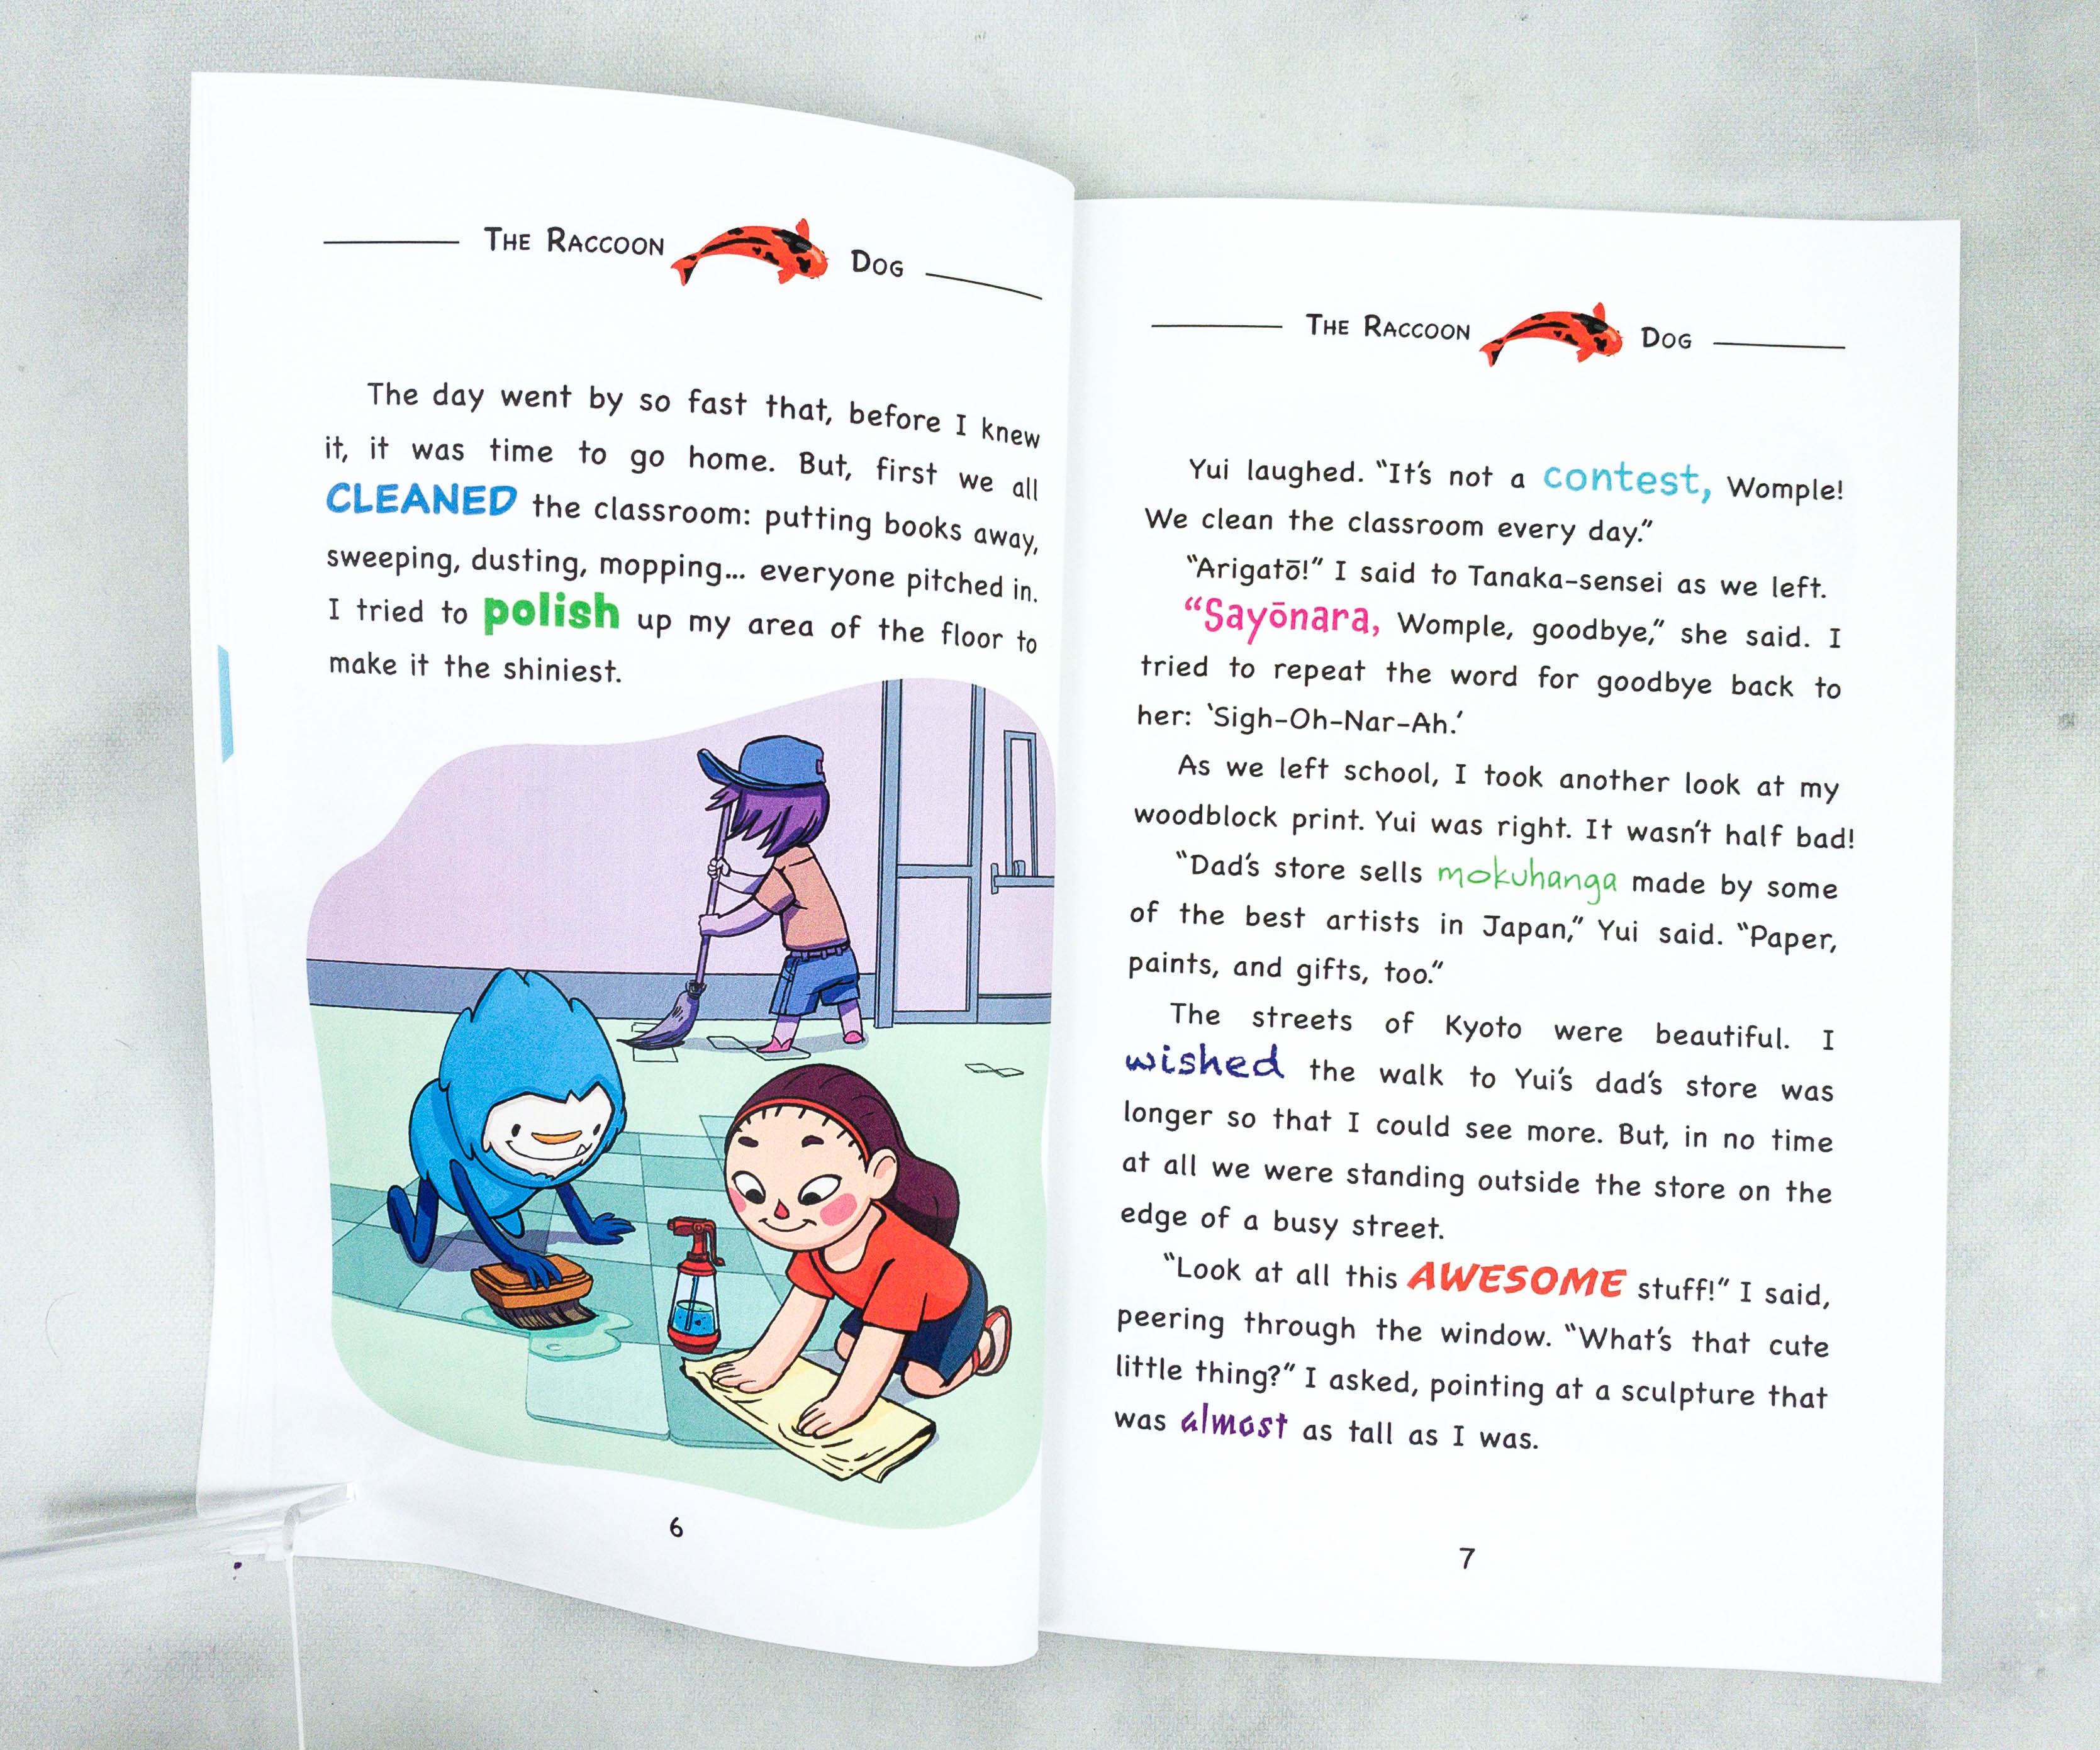 THE RACCOON DOG
The day went by so fast that, before I knew
it, it was time to go home. But, first we all
CLEANED the classroom: putting books away,
sweeping, dusting, mopping... everyone pitched in.
I tried to polish up my area of the floor to
make it the shiniest.
6
THE RACCOON DOG
Yui laughed. “It’s not a contest, Womple!
We clean the classroom every day.”
“Arigatō!” I said to Tanaka-sensei as we left.
“Sayōnara, Womple, goodbye,” she said. I
tried to repeat the word for goodbye back to
her: ‘Sigh-Oh-Nar-Ah.’
As we left school, I took another look at my
woodblock print. Yui was right. It wasn’t half bad!
“Dad’s store sells mokuhanga made by some
of the best artists in Japan,” Yui said. “Paper,
paints, and gifts, too.”
The streets of Kyoto were beautiful. I
wished the walk to Yui’s dad’s store was
longer so that I could see more. But, in no time
at all we were standing outside the store on the
edge of a busy street.
“Look at all this AWESOME stuff!” I said,
peering through the window. “What’s that cute
little thing?” I asked, pointing at a sculpture that
was almost as tall as I was.
7